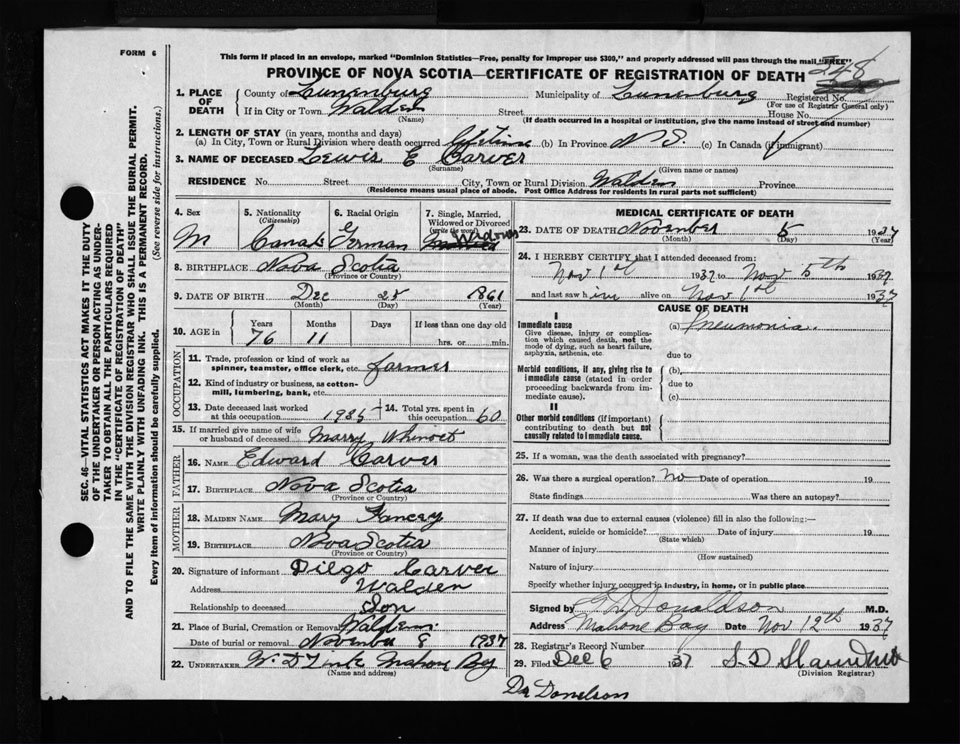 FORM 6
This form if placed in an envelope, marked "Dominion Statistics—Free, penalty for improper use $300," and properly addressed will pass through the mail "FREE"
PROVINCE OF NOVA SCOTIA—CERTIFICATE OF REGISTRATION OF DEATH 248
1. PLACE OF DEATH
County of Lunenburg Municipality of Lunenburg Registered No.
(For use of Registrar General only)
If in City or Town Walden Street House No.
(Name) (If death occurred in a hospital or institution, give the name instead of street and number)
2. LENGTH OF STAY (in years, months and days)
(a) In City, Town or Rural Division where death occurred Life Time (b) In Province N S. (c) In Canada (if immigrant)
3. NAME OF DECEASED Lewis E Carver
(Surname) (Given name or names)
RESIDENCE No. Street City, Town or Rural Division Walden Province
(Residence means usual place of abode. Post Office Address for residents in rural parts not sufficient)
4. Sex M
5. Nationality (Citizenship) Canad
6. Racial Origin German
7. Single, Married, Widowed or Divorced (write the word) Widower
8. BIRTHPLACE Nova Scotia
(Province or Country)
9. DATE OF BIRTH Dec 25 1861
(Month) (Day) (Year)
10. AGE in Years 76 Months 11 Days If less than one day old hrs. or min.
OCCUPATION
11. Trade, profession or kind of work as spinner, teamster, office clerk, etc. farmer
12. Kind of industry or business, as cotton-mill, lumbering, bank, etc.
13. Date deceased last worked at this occupation 1935 14. Total yrs. spent in this occupation 60
15. If married give name of wife or husband of deceased Marry Whinot
FATHER
16. NAME Edward Carver
17. BIRTHPLACE Nova Scotia
(Province or Country)
MOTHER
18. MAIDEN NAME Mary
19. BIRTHPLACE Nova Scotia
(Province or Country)
20. Signature of informant Diego Carver
Address Walden
Relationship to deceased Son
21. Place of Burial, Cremation or Removal Walden
Date of burial or removal November 8 1937
22. UNDERTAKER Mahone Bay
(Name and address)
MEDICAL CERTIFICATE OF DEATH
23. DATE OF DEATH November 5 1937
(Month) (Day) (Year)
24. I HEREBY CERTIFY that I attended deceased from:
Nov 1st 1937 to Nov 5th 1937
and last saw him alive on Nov 1st 1937
CAUSE OF DEATH
I
Immediate cause
Give disease, injury or complication which caused death, not the mode of dying, such as heart failure, asphyxia, asthenia, etc
(a) Pneumonia.
due to
Morbid conditions, if any, giving rise to immediate cause (stated in order proceeding backwards from immediate cause).
(b)
due to
(c)
II
Other morbid conditions (if important) contributing to death but not causally related to immediate cause.
25. If a woman, was the death associated with pregnancy?
26. Was there a surgical operation? No Date of operation 19
State findings Was there an autopsy?
27. If death was due to external causes (violence) fill in also the following:—
Accident, suicide or homicide? Date of injury 19
(State which)
Manner of injury
(How sustained)
Nature of injury
Specify whether injury occurred in industry, in home, or in public place
Signed by Donaldson M.D.
Address Mahone Bay Date Nov 12th 1937
28. Registrar's Record Number
29. Filed Dec 6 1937
(Division Registrar)
Dr Donelson
SEC. 46—VITAL STATISTICS ACT MAKES IT THE DUTY
OF THE UNDERTAKER OR PERSON ACTING AS UNDER-
TAKER TO OBTAIN ALL THE PARTICULARS REQUIRED
IN THE "CERTIFICATE OF REGISTRATION OF DEATH"
AND TO FILE THE SAME WITH THE DIVISION REGISTRAR WHO SHALL ISSUE THE BURIAL PERMIT.
WRITE PLAINLY WITH UNFADING INK. THIS IS A PERMANENT RECORD.
Every item of information should be carefully supplied.
(See reverse side for instructions.)